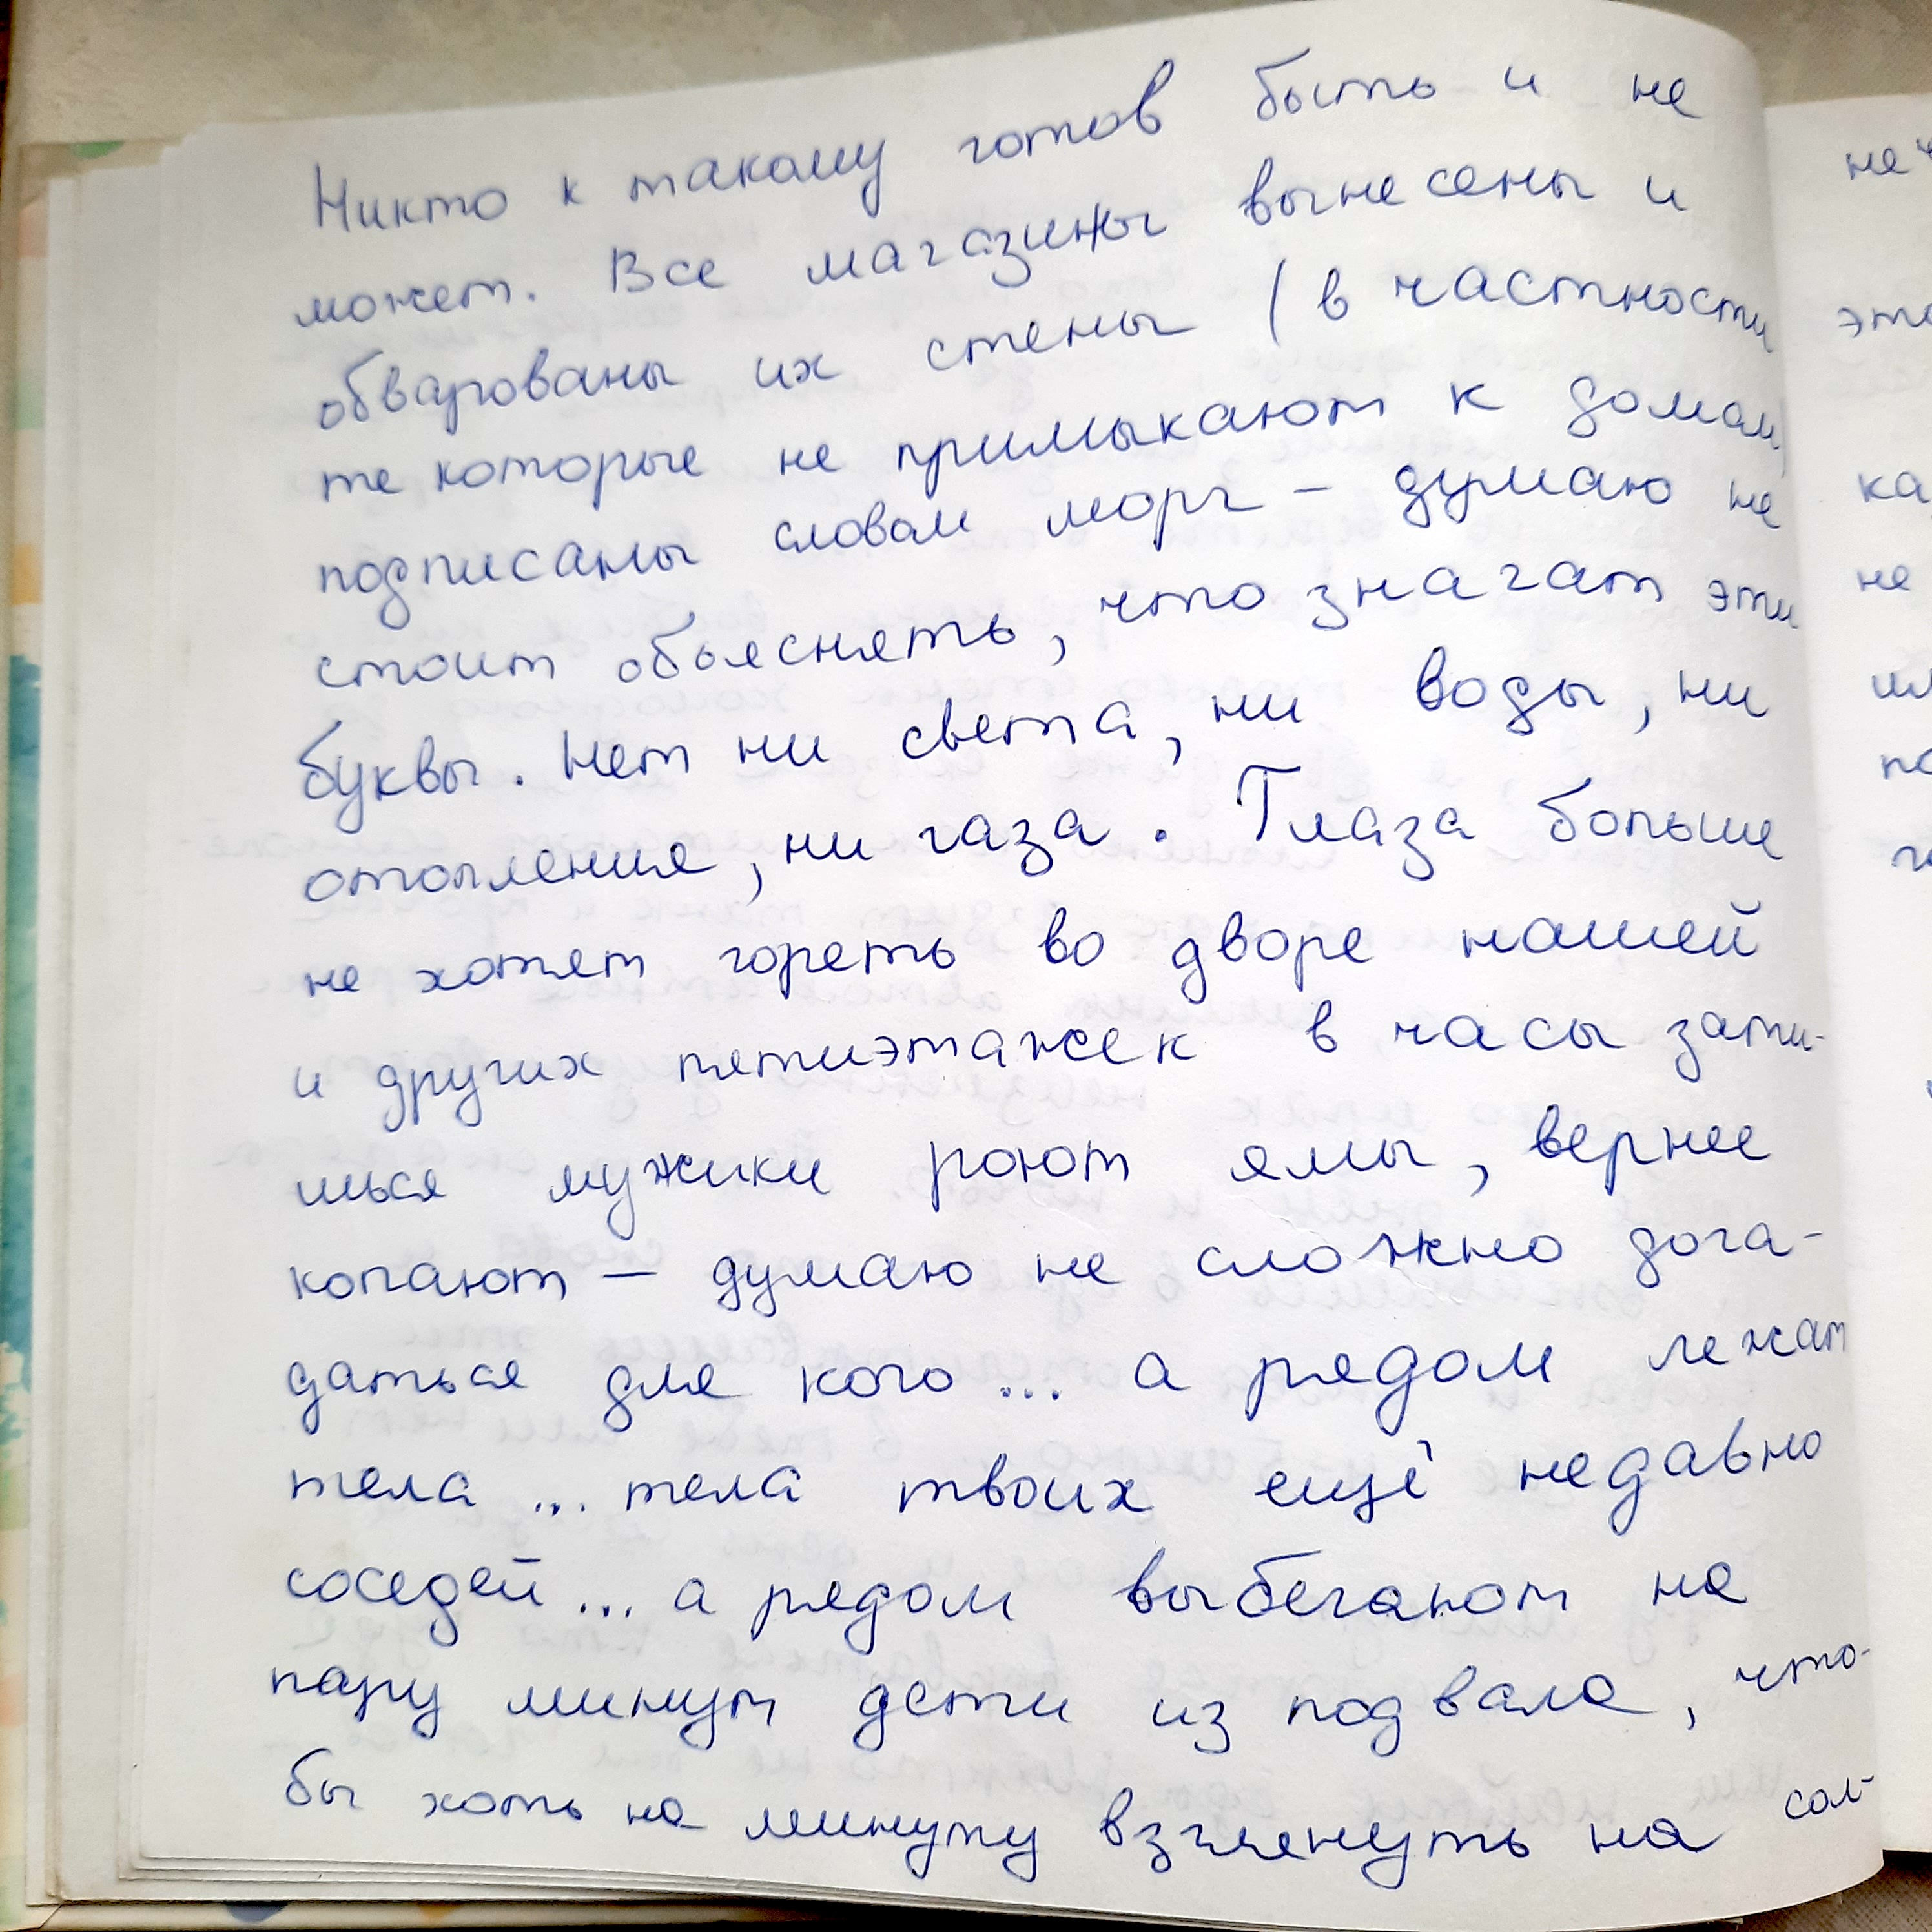 Никто к такому готов быть и не
может. Все магазины вынесены и
обварованы их стены (в частности
те которые не примыкают к домам)
подписаны словом морг – думаю не
стоит обьяснять, что значат эти
буквы. Нет ни света, ни воды, ни
отопления, ни газа. Глаза больше
не хотят гореть во дворе нашей
и других пятиэтажек в часы зати-
шься мужики роют ямы, вернее
копают – думаю не сложно дога-
даться для кого... а рядом лежат
тела ... тела твоих ещё недавно
соседей... а рядом выбегают на
пару минут дети из подвала, что-
бы хоть на минуту взглянуть на сол-